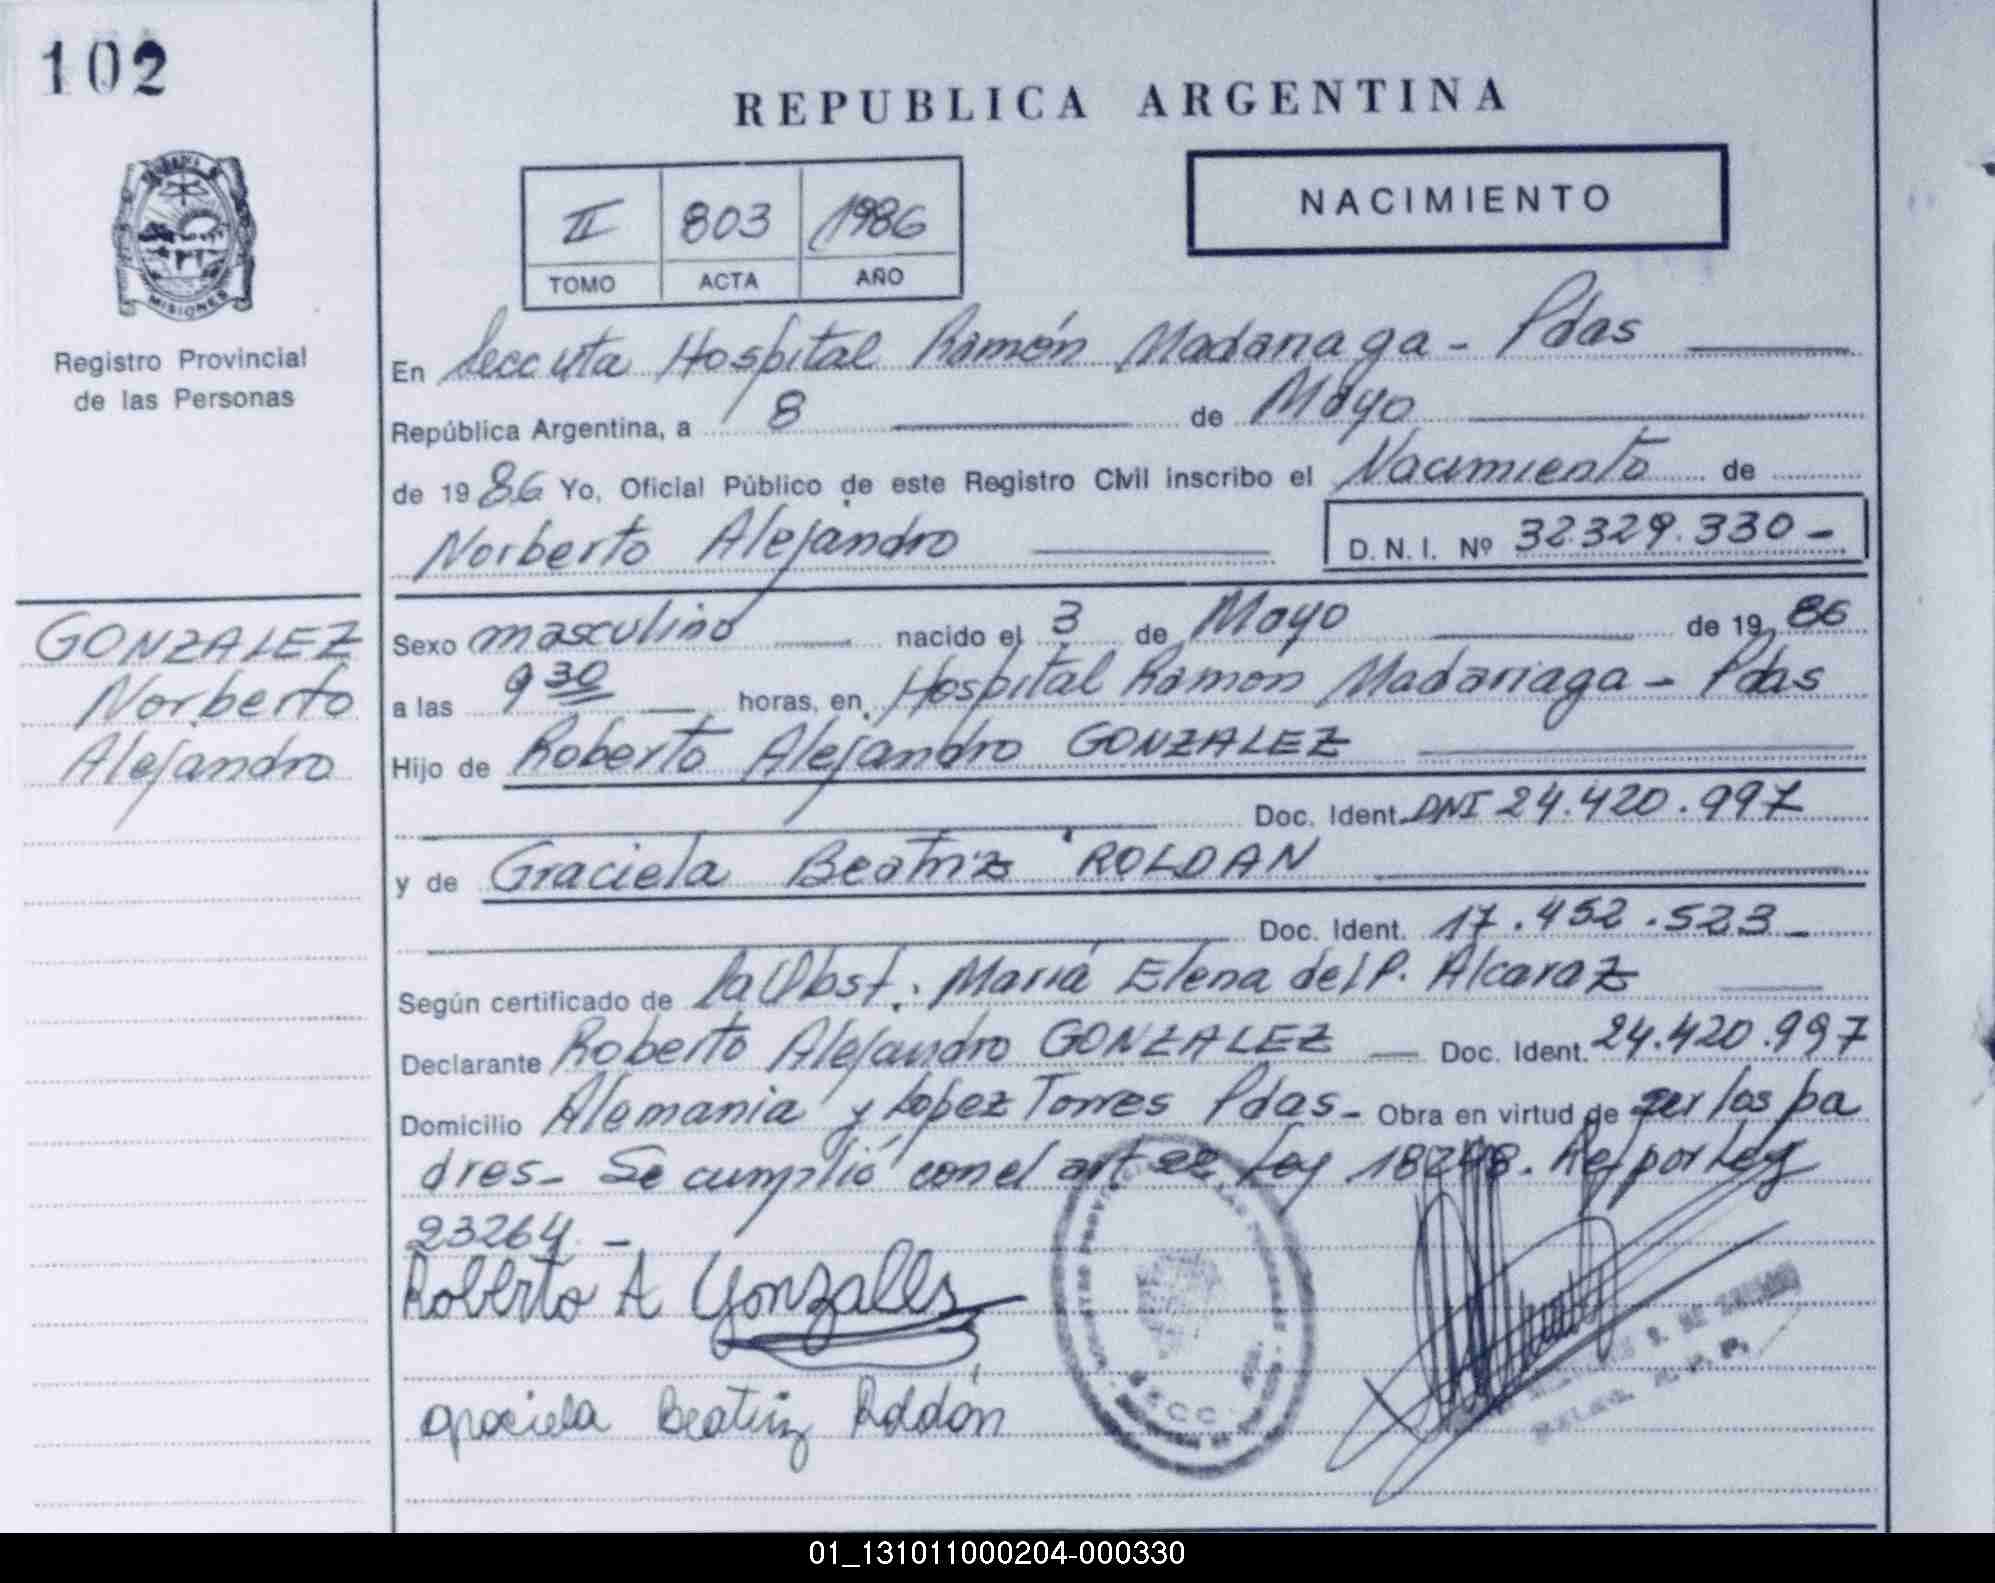 102
REPUBLICA ARGENTINA
NACIMIENTO
II 803 1986
TOMO ACTA AÑO
MISIONES
Registro Provincial
de las Personas
En Secc uta Hospital Ramón Madariaga - Pdas
República Argentina, a 8 de Mayo
de 1986 Yo, Oficial Público de este Registro Civil inscribo el Nacimiento de
Norberto Alejandro D.N.I. Nº 32.329.330-
GONZALEZ
Norberto
Alejandro
Sexo masculino nacido el 3 de Mayo de 1986
a las 9 30 horas, en Hospital Ramon Madariaga - Pdas
Hijo de Roberto Alejandro GONZALEZ
Doc. Ident. DNI 24.420.997
y de Graciela Beatriz ROLDAN
Doc. Ident. 17.452.523-
Según certificado de la Obst. María Elena del P. Alcaraz
Declarante Roberto Alejandro GONZALEZ Doc. Ident. 24.420.997
Domicilio Alemania y Lopez Torres Pdas- Obra en virtud de ser los pa
dres- Se cumplió con el art Ley 18248. Ref por Ley
23264-
Roberto A Gonzales
graciela Beatriz Roldán
01_131011000204-000330